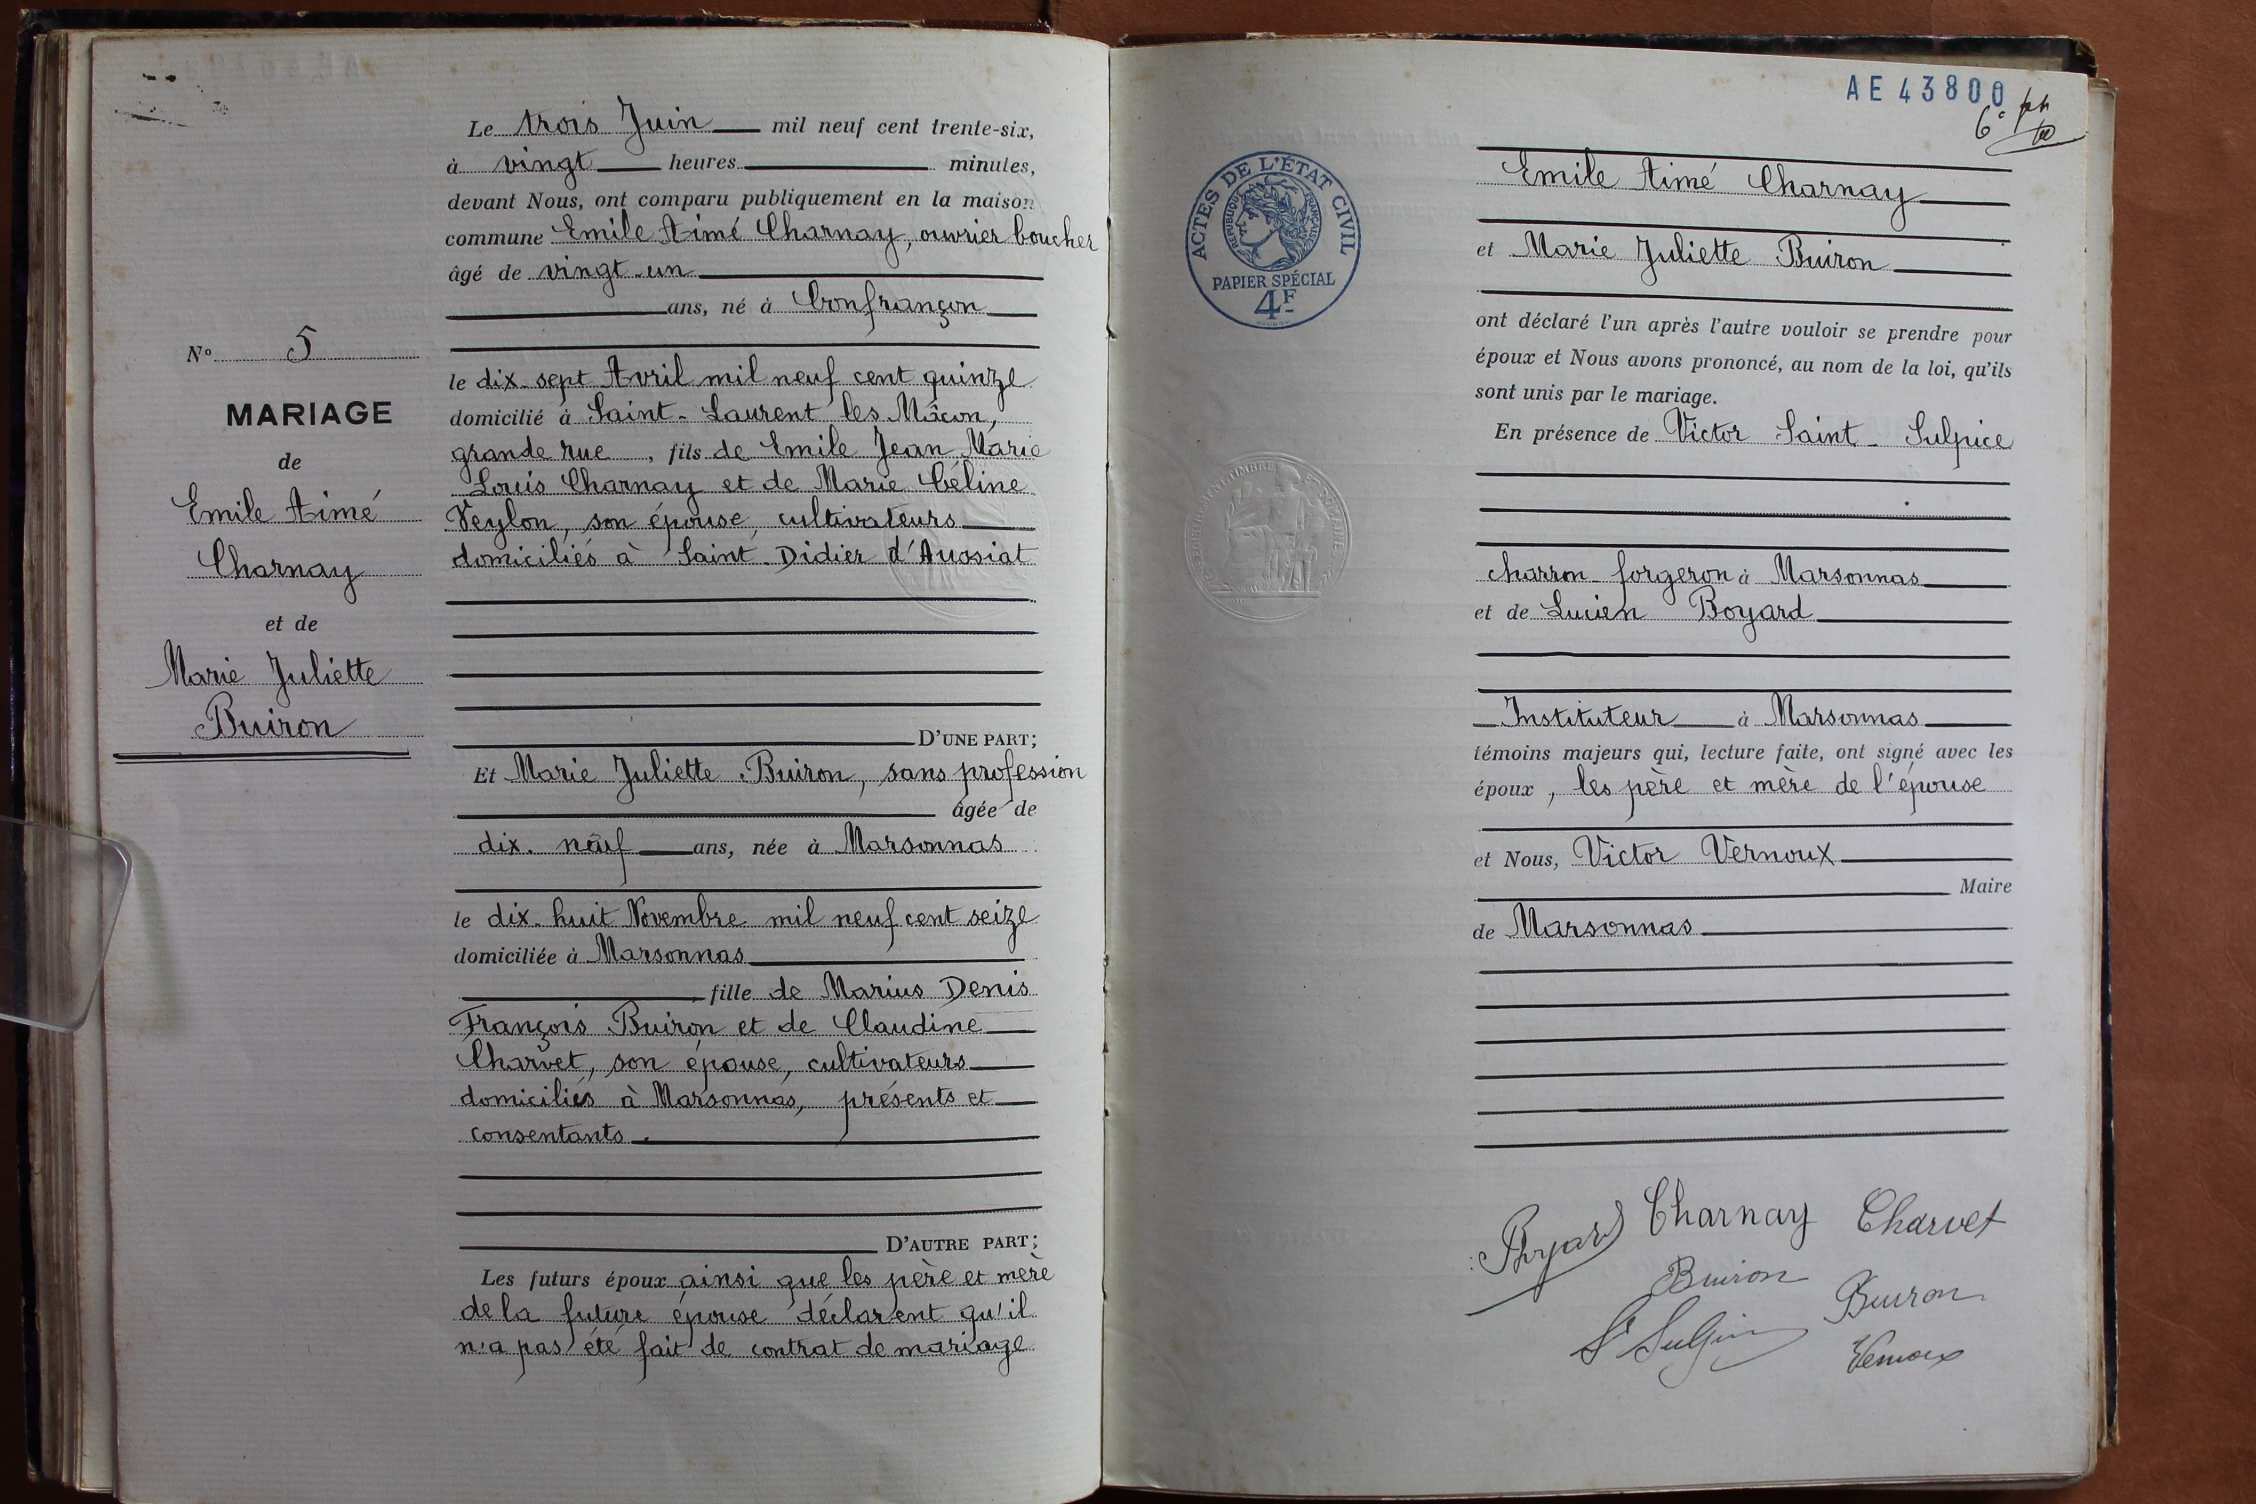 Le trois Juin mil neuf cent trente-six,
à vingt heures minutes,
devant Nous, ont comparu publiquement en la maison
commune Emile Aimé Charnay, ouvrier boucher
âgé de vingt-un
ans, né à Confrançon
le dix-sept Avril mil neuf cent quinze
domicilié à Saint-Laurent les Mâcon,
grande rue, fils de Emile Jean Marie
Louis Charnay et de Marie Céline
Veylon, son épouse cultivateurs
domiciliés à Saint-Didier d'Aussiat
D'UNE PART;
Et Marie Juliette Buiron, sans profession
âgée de
dix-neuf ans, née à Marsonnas
le dix-huit Novembre mil neuf cent seize
domiciliée à Marsonnas
fille de Marius Denis
François Buiron et de Claudine
Charvet, son épouse, cultivateurs
domiciliés à Marsonnas, présents et
consentants.
D'AUTRE PART;
Les futurs époux ainsi que les père et mère
de la future épouse déclarent qu'il
n'a pas été fait de contrat de mariage
N° 5
MARIAGE
de
Emile Aimé
Charnay
et de
Marie Juliette
Buiron
AE 43800
6e
ACTES DE L'ÉTAT CIVIL
RÉPUBLIQUE FRANÇAISE
PAPIER SPÉCIAL
4F
Emile Aimé Charnay
et Marie Juliette Buiron
ont déclaré l'un après l'autre vouloir se prendre pour
époux et Nous avons prononcé, au nom de la loi, qu'ils
sont unis par le mariage.
En présence de Victor Saint-Sulpice
charron-forgeron à Marsonnas
et de Lucien Boyard
Instituteur à Marsonnas
témoins majeurs qui, lecture faite, ont signé avec les
époux, les père et mère de l'épouse
et Nous, Victor Vernoux
Maire
de Marsonnas
Boyard Charnay Charvet
Buiron Buiron
St Sulpice Vernoux